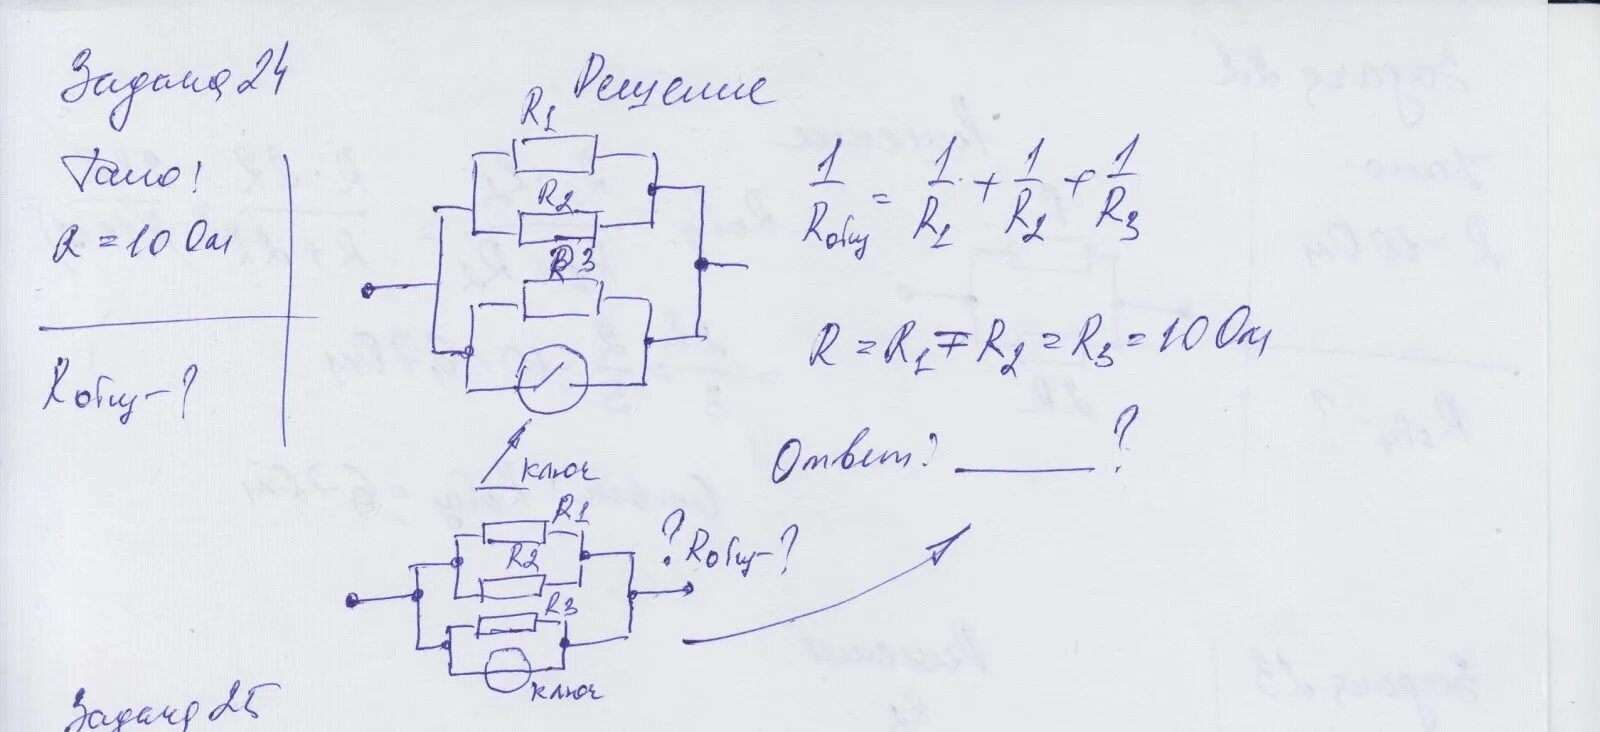 Задача 24
Решение
Дано:
R = 10 Ом
Rобщ - ?
R1
R2
R3
ключ
1/Rобщ = 1/R1 + 1/R2 + 1/R3
R = R1 = R2 = R3 = 10 Ом
Ответ: ______ ?
R1
R2
R3
ключ
? Rобщ - ?
Задача 25